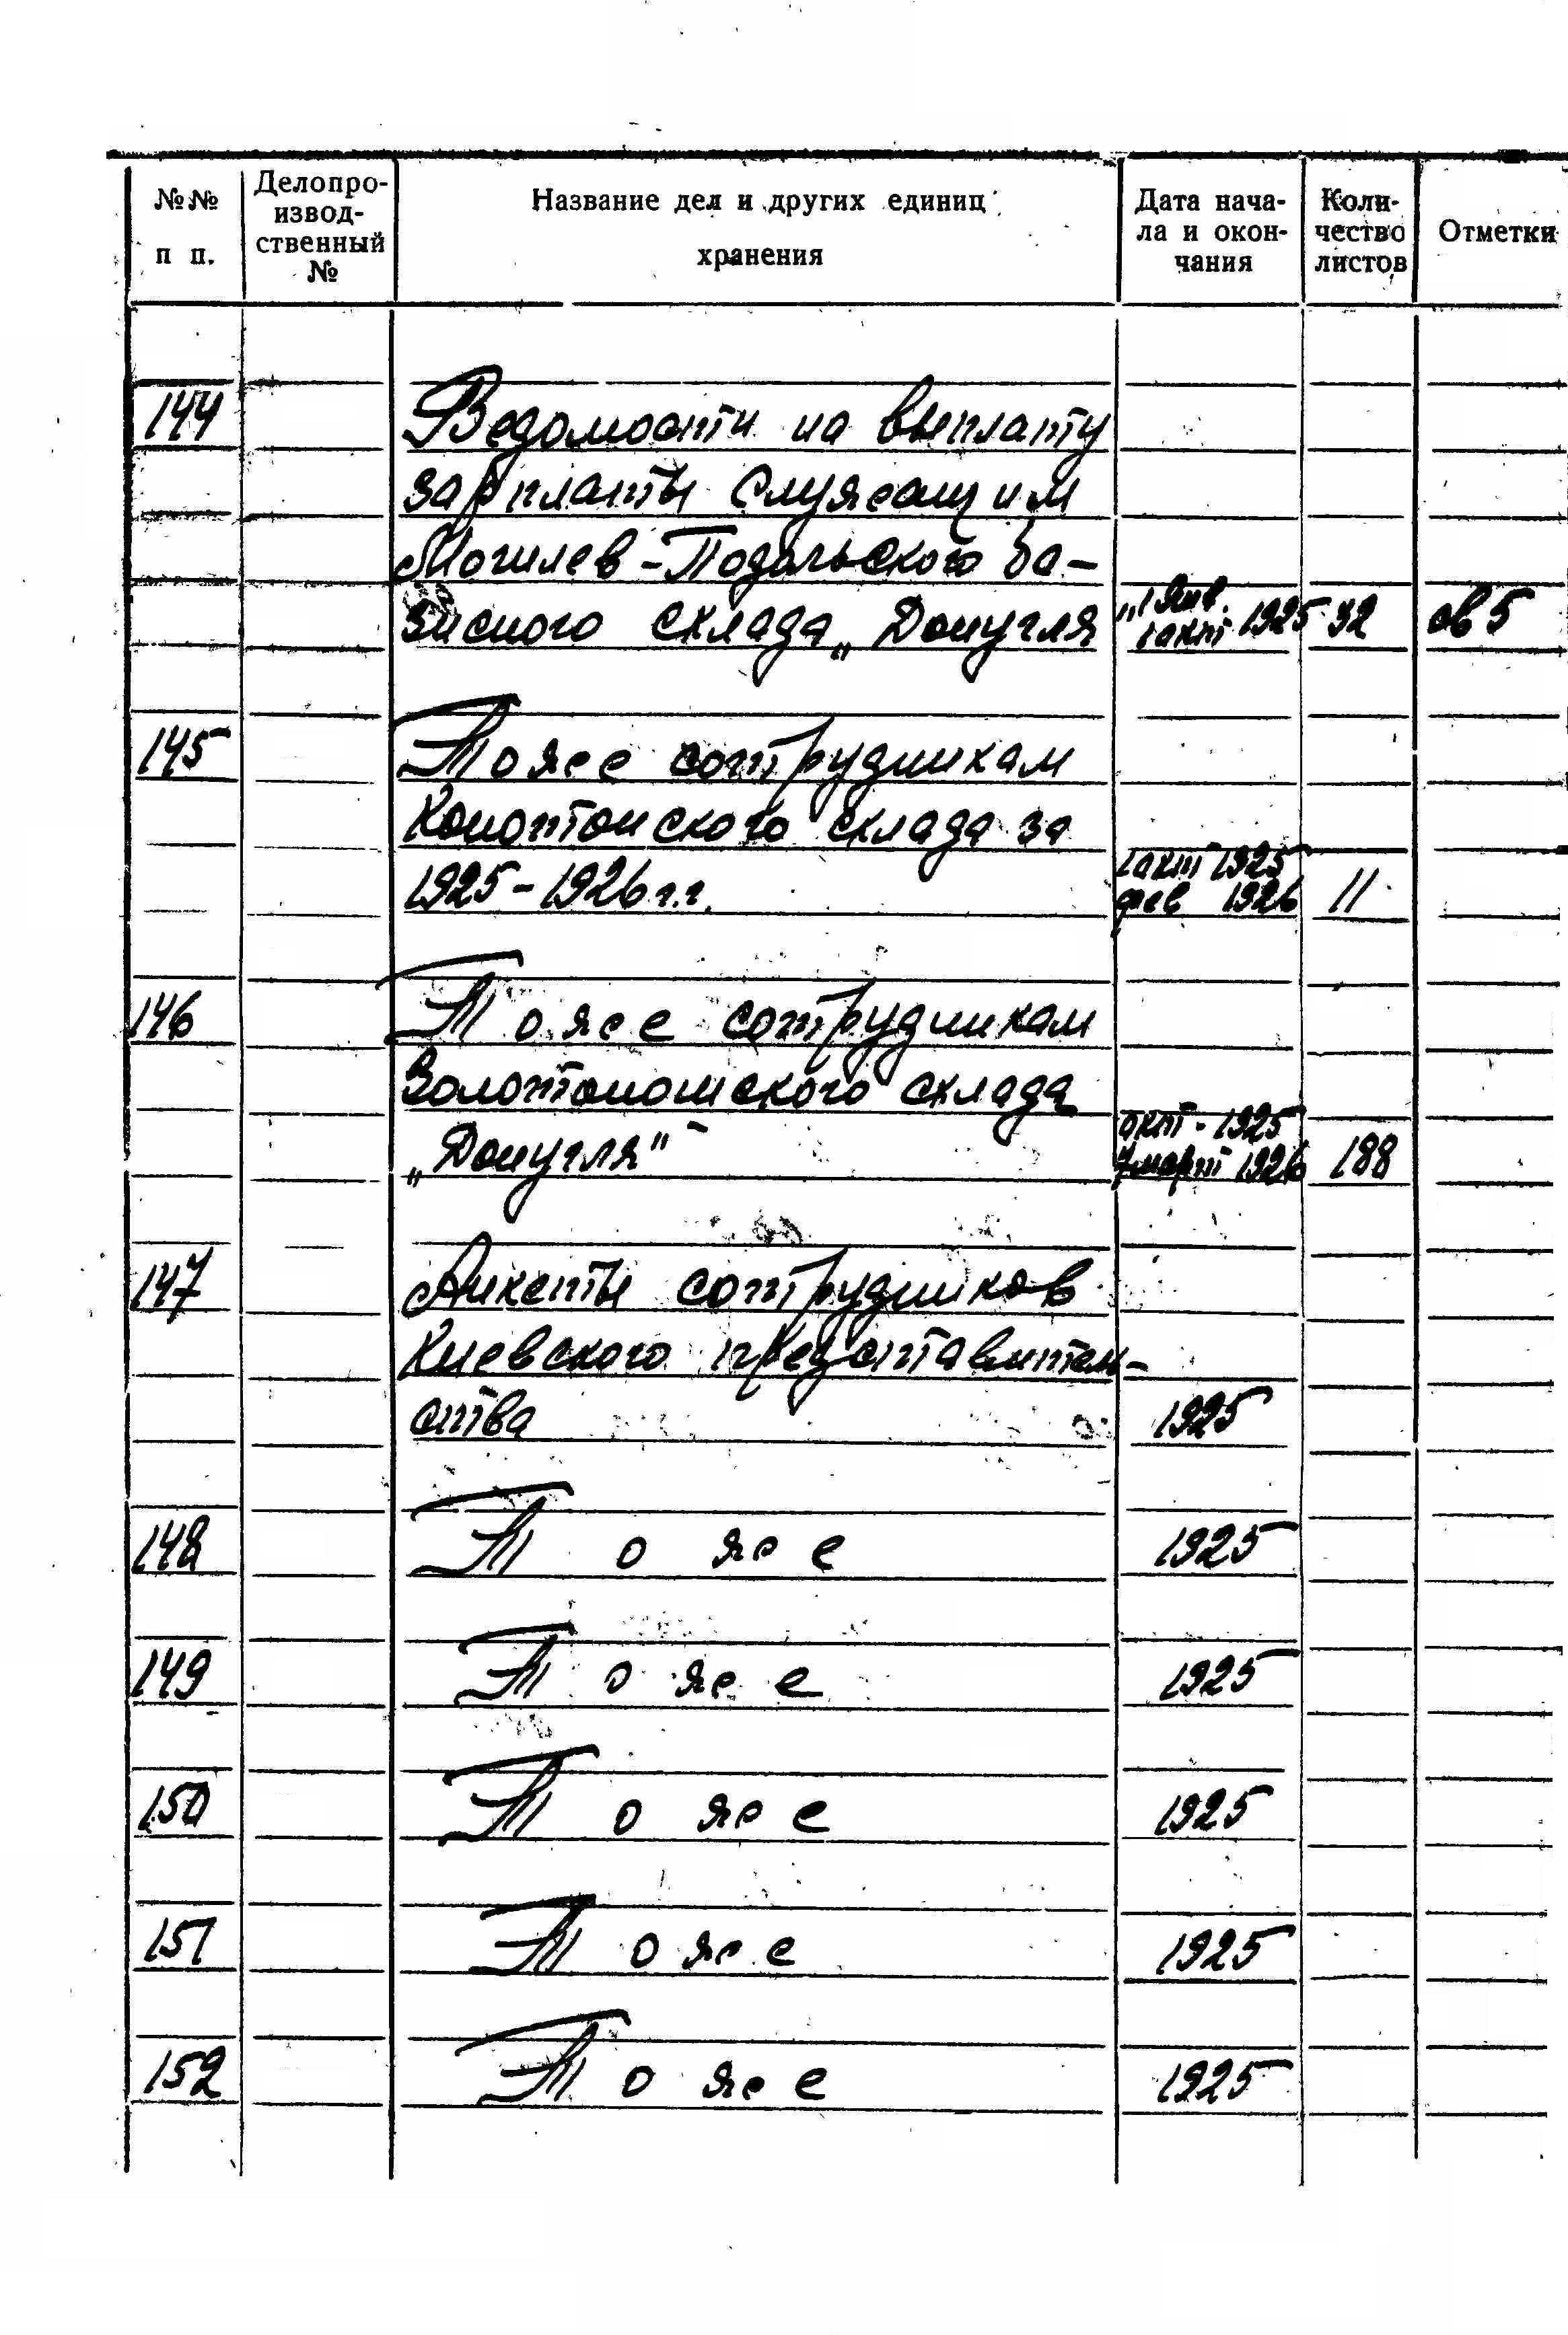 №№ п п.
Делопро-
извод-
ственный
№
Название дел и других единиц
хранения
Дата нача-
ла и окон-
чания
Коли-
чество
листов
Отметки
144 Ведомости на выплату
зарплаты служащим
Могилев-Подольского ба-
зисного склада „Донугля 1 янв. 1 окт 1925 32 св 5
145 Тоже сотрудникам
Конотопского склада за
1925-1926 г.г. 1 окт 1925 фев 1926 11
146 Тоже сотрудникам
Золотоношского склада
„Донугля" окт - 1925 7 март 1926 188
147 Анкеты сотрудников
Киевского представитель-
ства 1925
148 То же 1925
149 То же 1925
150 То же 1925
151 То же 1925
152 То же 1925